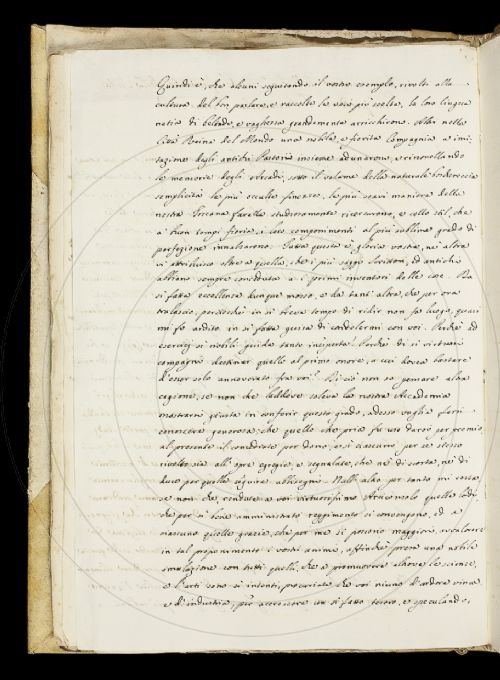 Quindi è, che alcuni seguendo il vostro esempio, rivolti alla
cultura del ben parlare, e raccolte le voci più scelte, la loro lingua
natia di beltade, e vaghezza grandemente arricchirono. Altri nella
Città Reina del Mondo una nobile, e fiorita Compagnia a imi-
tazione degli antichi Pastori insieme adunarono, e rinovellando
le memorie degli Arcadi, sotto il velame della naturale
semplicità le più occulte finezze, le più soavi maniere della
nostra Toscana favella studiosamente ricercarono, e collo stil, che
a buon tempi fioria, i loro componimenti al più sublime grado di
perfezione innalzarono. Tutta questa è gloria vostra, ne altra
vi attribuisco oltre a quella, che i più saggi Scrittori, ed antichi
abbiano sempre conceduta a i primi inventori delle cose. Da
si fatta eccellenza dunque mosso, e da tant' altre, che per ora
tralascio, perciocchè in si breve tempo di ridir non fa luogo, quasi
mi fo ardito in si fatta guisa di condolermi con voi. Perchè ad
esercizj si nobili guida tanto inesperta? Perchè di si virtuosa
compagnia destinar quello al primo onore, a cui dovea bastare
d'esser solo annoverato fra voi? Perciò non so pensare altra
cagione, se non che laddove soleva la nostra Accademia
mostrarsi giusta in conferir questo grado, adesso voglia farsi
conoscere generosa, che quello che pria fu uso darsi per premio
al presente il concedeste per dono, e si ciascuno per se stesso
rivolto sia all' opre egregie, e segnalate, che nè di scorta, nè di
duce per quelle seguire abbisogna. Null' altro per tanto mi resta,
se non che, rendute a voi virtuosissimo Arciconsolo quelle lodi,
che per si bene amministrato reggimento si convengono, ed a
ciascuno quelle grazie, che per me si possono maggiori,
in tal proponimento i vostri animi, affinchè presa una nobile
emulazione con tutti quelli, che a promuovere altrove le scienze,
e l'arti sono si intenti, procuriate che voi niuno d'ardore vinca,
e d'industria, per accrescere un si fatto tesoro, e speculando,